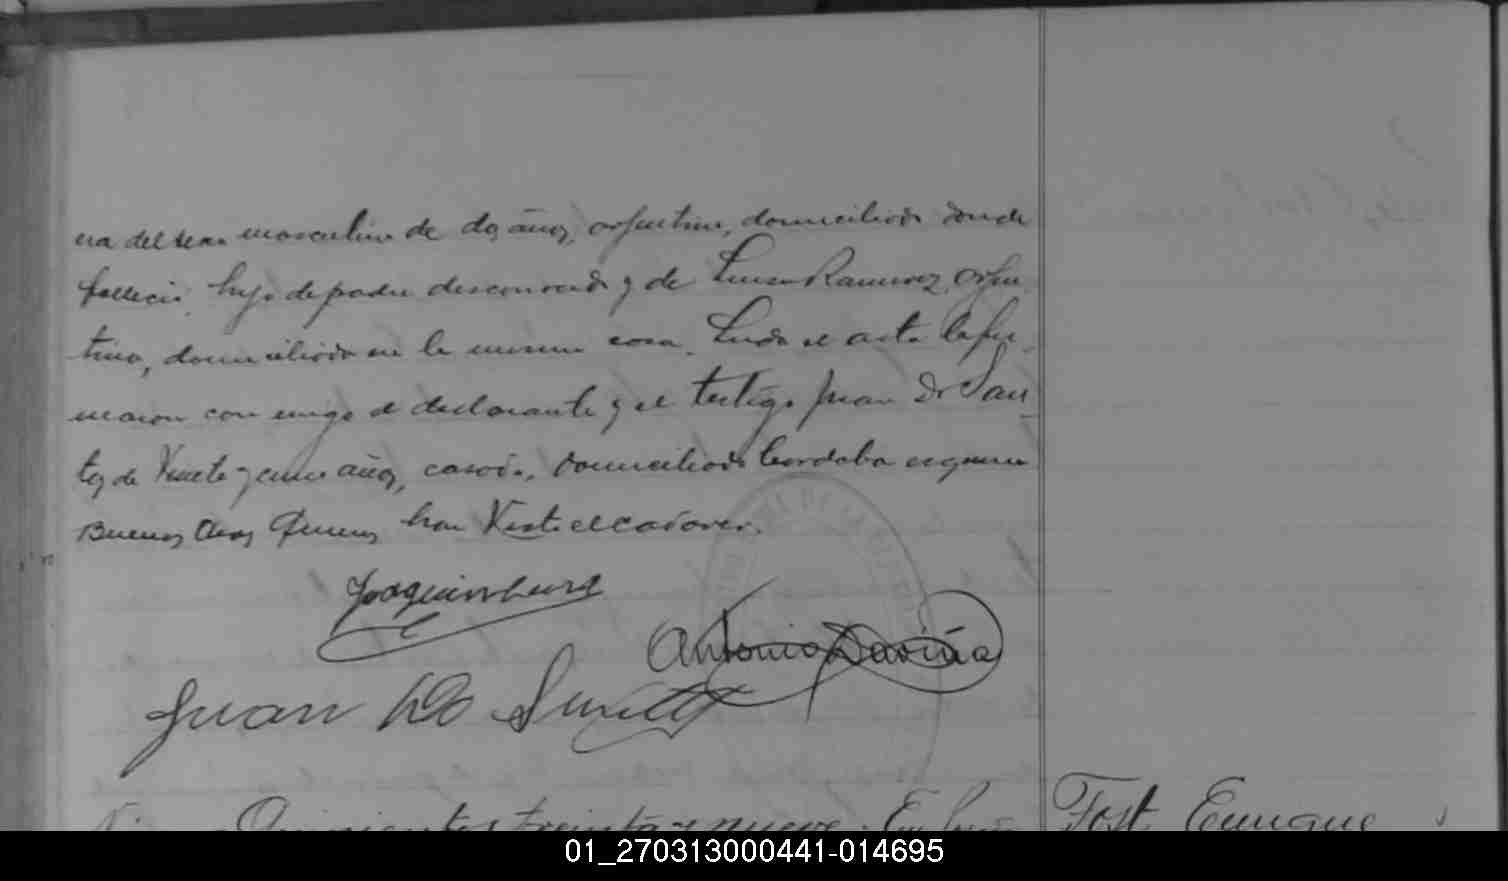 era del sexo masculino de dos años, argentino, domiciliado donde
falleció, hijo de padre desconocido y de Luisa Ramirez, argen
tina, domiciliada en la misma casa. Leida el acta la fir
maron conmigo el declarante y el testigo Juan D. San
tos de Veinte y cinco años, casado, domiciliado Cordoba esquina
Buenos Aires Quienes han Visto el cadaver.
Joaquin
Antonio Daviña
Juan
Quinientos treinta y nueve. En
Fost Enrique
01_270313000441-014695